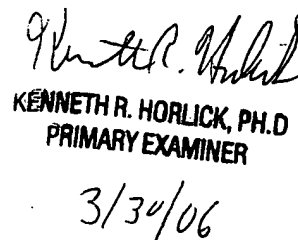 Kenneth R. Horlick
KENNETH R. HORLICK, PH.D
PRIMARY EXAMINER
3/30/06